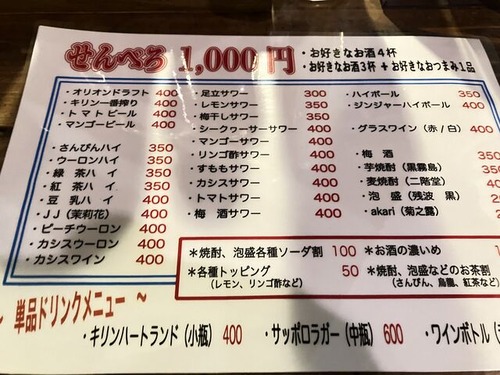 せんべろ 1,000円
・お好きなお酒4杯
・お好きなお酒3杯+お好きなおつまみ1品
・オリオンドラフト 400
・キリン一番搾り 400
・トマトビール 400
・マンゴービール 400
・さんぴんハイ 350
・ウーロンハイ 350
・緑茶ハイ 350
・紅茶ハイ 350
・豆乳ハイ 400
・JJ(茉莉花) 400
・ピーチウーロン 400
・カシスウーロン 400
・カシスワイン 400
・足立サワー 300
・レモンサワー 350
・梅干しサワー 350
・シークヮーサーサワー 400
・マンゴーサワー 400
・リンゴ酢サワー 400
・すももサワー 400
・カシスサワー 400
・トマトサワー 400
・梅酒サワー 400
・ハイボール 350
・ジンジャーハイボール 400
・グラスワイン(赤/白) 400
・梅酒 350
・芋焼酎(黒霧島) 350
・麦焼酎(二階堂)
・泡盛(残波 黒)
・akari(菊之露)
*焼酎、泡盛各種ソーダ割 100
*各種トッピング 50
(レモン、リンゴ酢など)
*お酒の濃いめ
*焼酎、泡盛などのお茶割
(さんぴん、烏龍、紅茶など)
~ 単品ドリンクメニュー ~
・キリンハートランド(小瓶) 400
・サッポロラガー(中瓶) 600
・ワインボトル